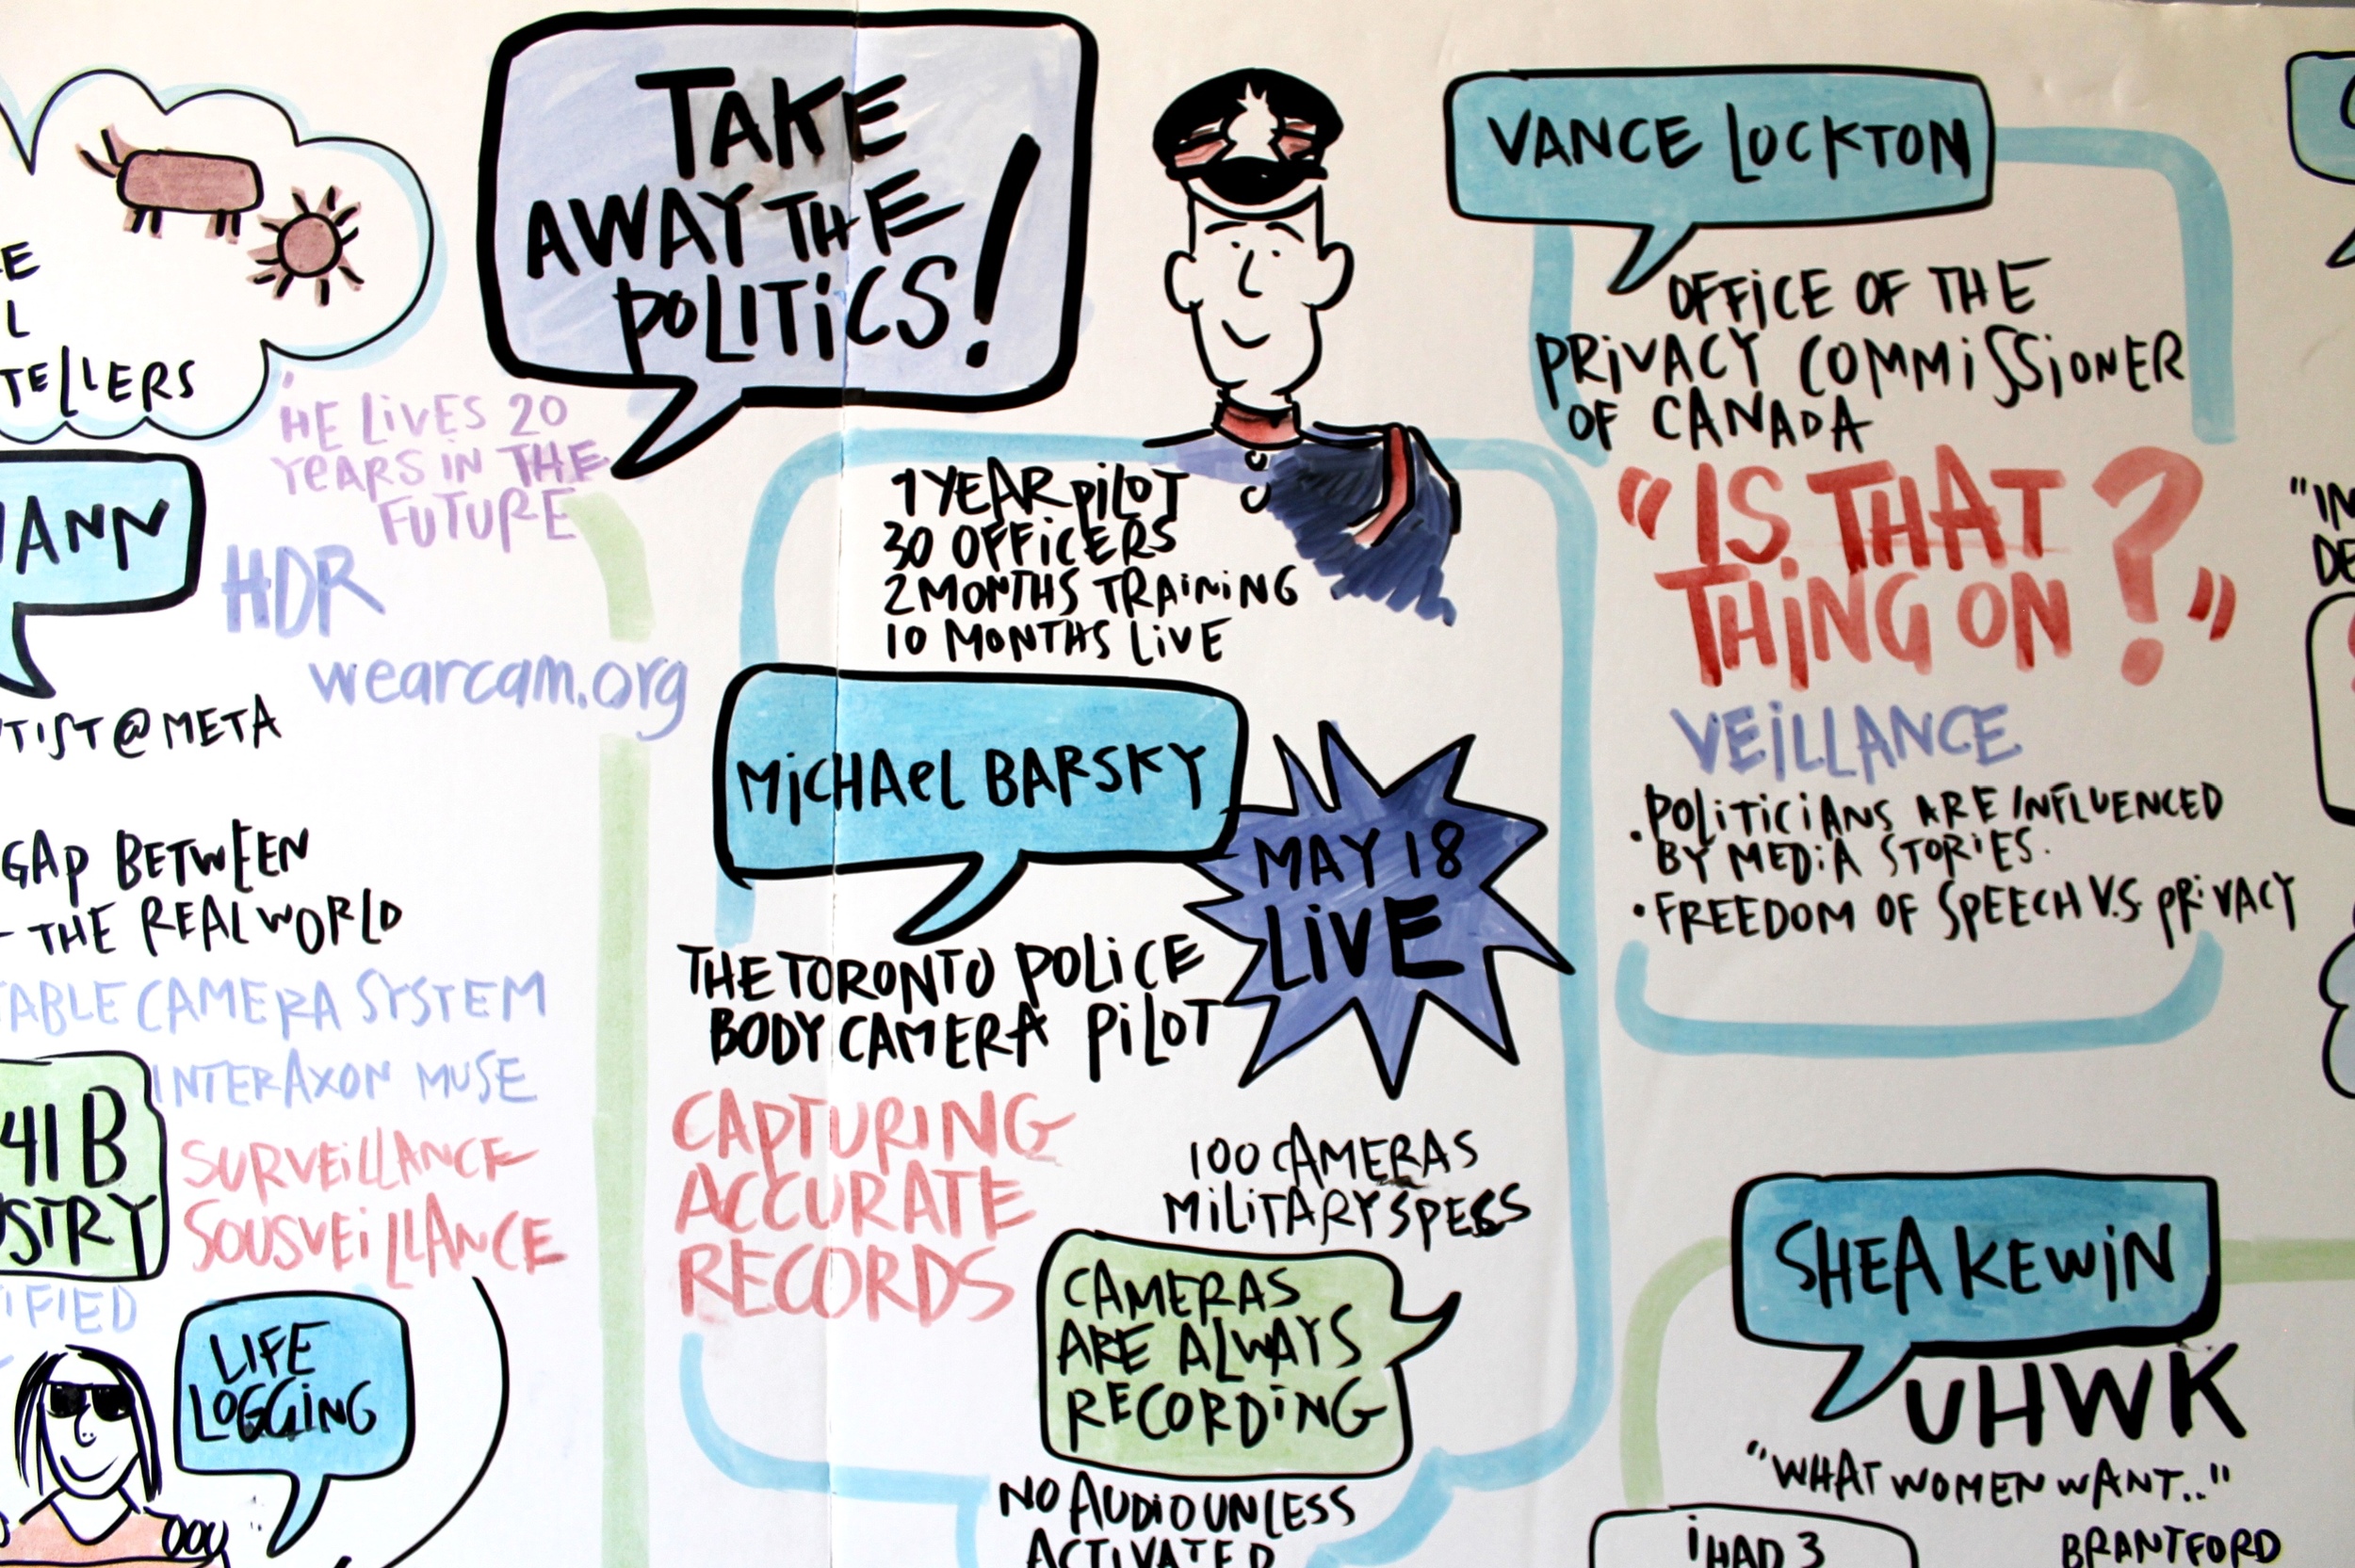 TELLERS
"HE LIVES 20
YEARS IN THE
FUTURE
ANN
HDR
wearcam.org
TIST @ META
GAP BETWEEN
THE REAL WORLD
TABLE CAMERA SYSTEM
INTERAXON MUSE
41 B
STRY
SURVEILLANCE
SOUSVEILLANCE
IFIED
LIFE
LOGGING
TAKE
AWAY THE
POLITICS!
1 YEAR PILOT
30 OFFICERS
2 MONTHS TRAINING
10 MONTHS LIVE
MICHAEL BARSKY
MAY 18
LIVE
THE TORONTO POLICE
BODY CAMERA PILOT
CAPTURING
ACCURATE
RECORDS
100 CAMERAS
MILITARY SPECS
CAMERAS
ARE ALWAYS
RECORDING
NO AUDIO UNLESS
ACTIVATED
VANCE LOCKTON
OFFICE OF THE
PRIVACY COMMISSIONER
OF CANADA
"IS THAT
THING ON?"
VEILLANCE
• POLITICIANS ARE INFLUENCED
BY MEDIA STORIES.
• FREEDOM OF SPEECH V.S PRIVACY
SHEA KEWIN
UHWK
"WHAT WOMEN WANT.."
I HAD 3
BRANTFORD
"IN
DE